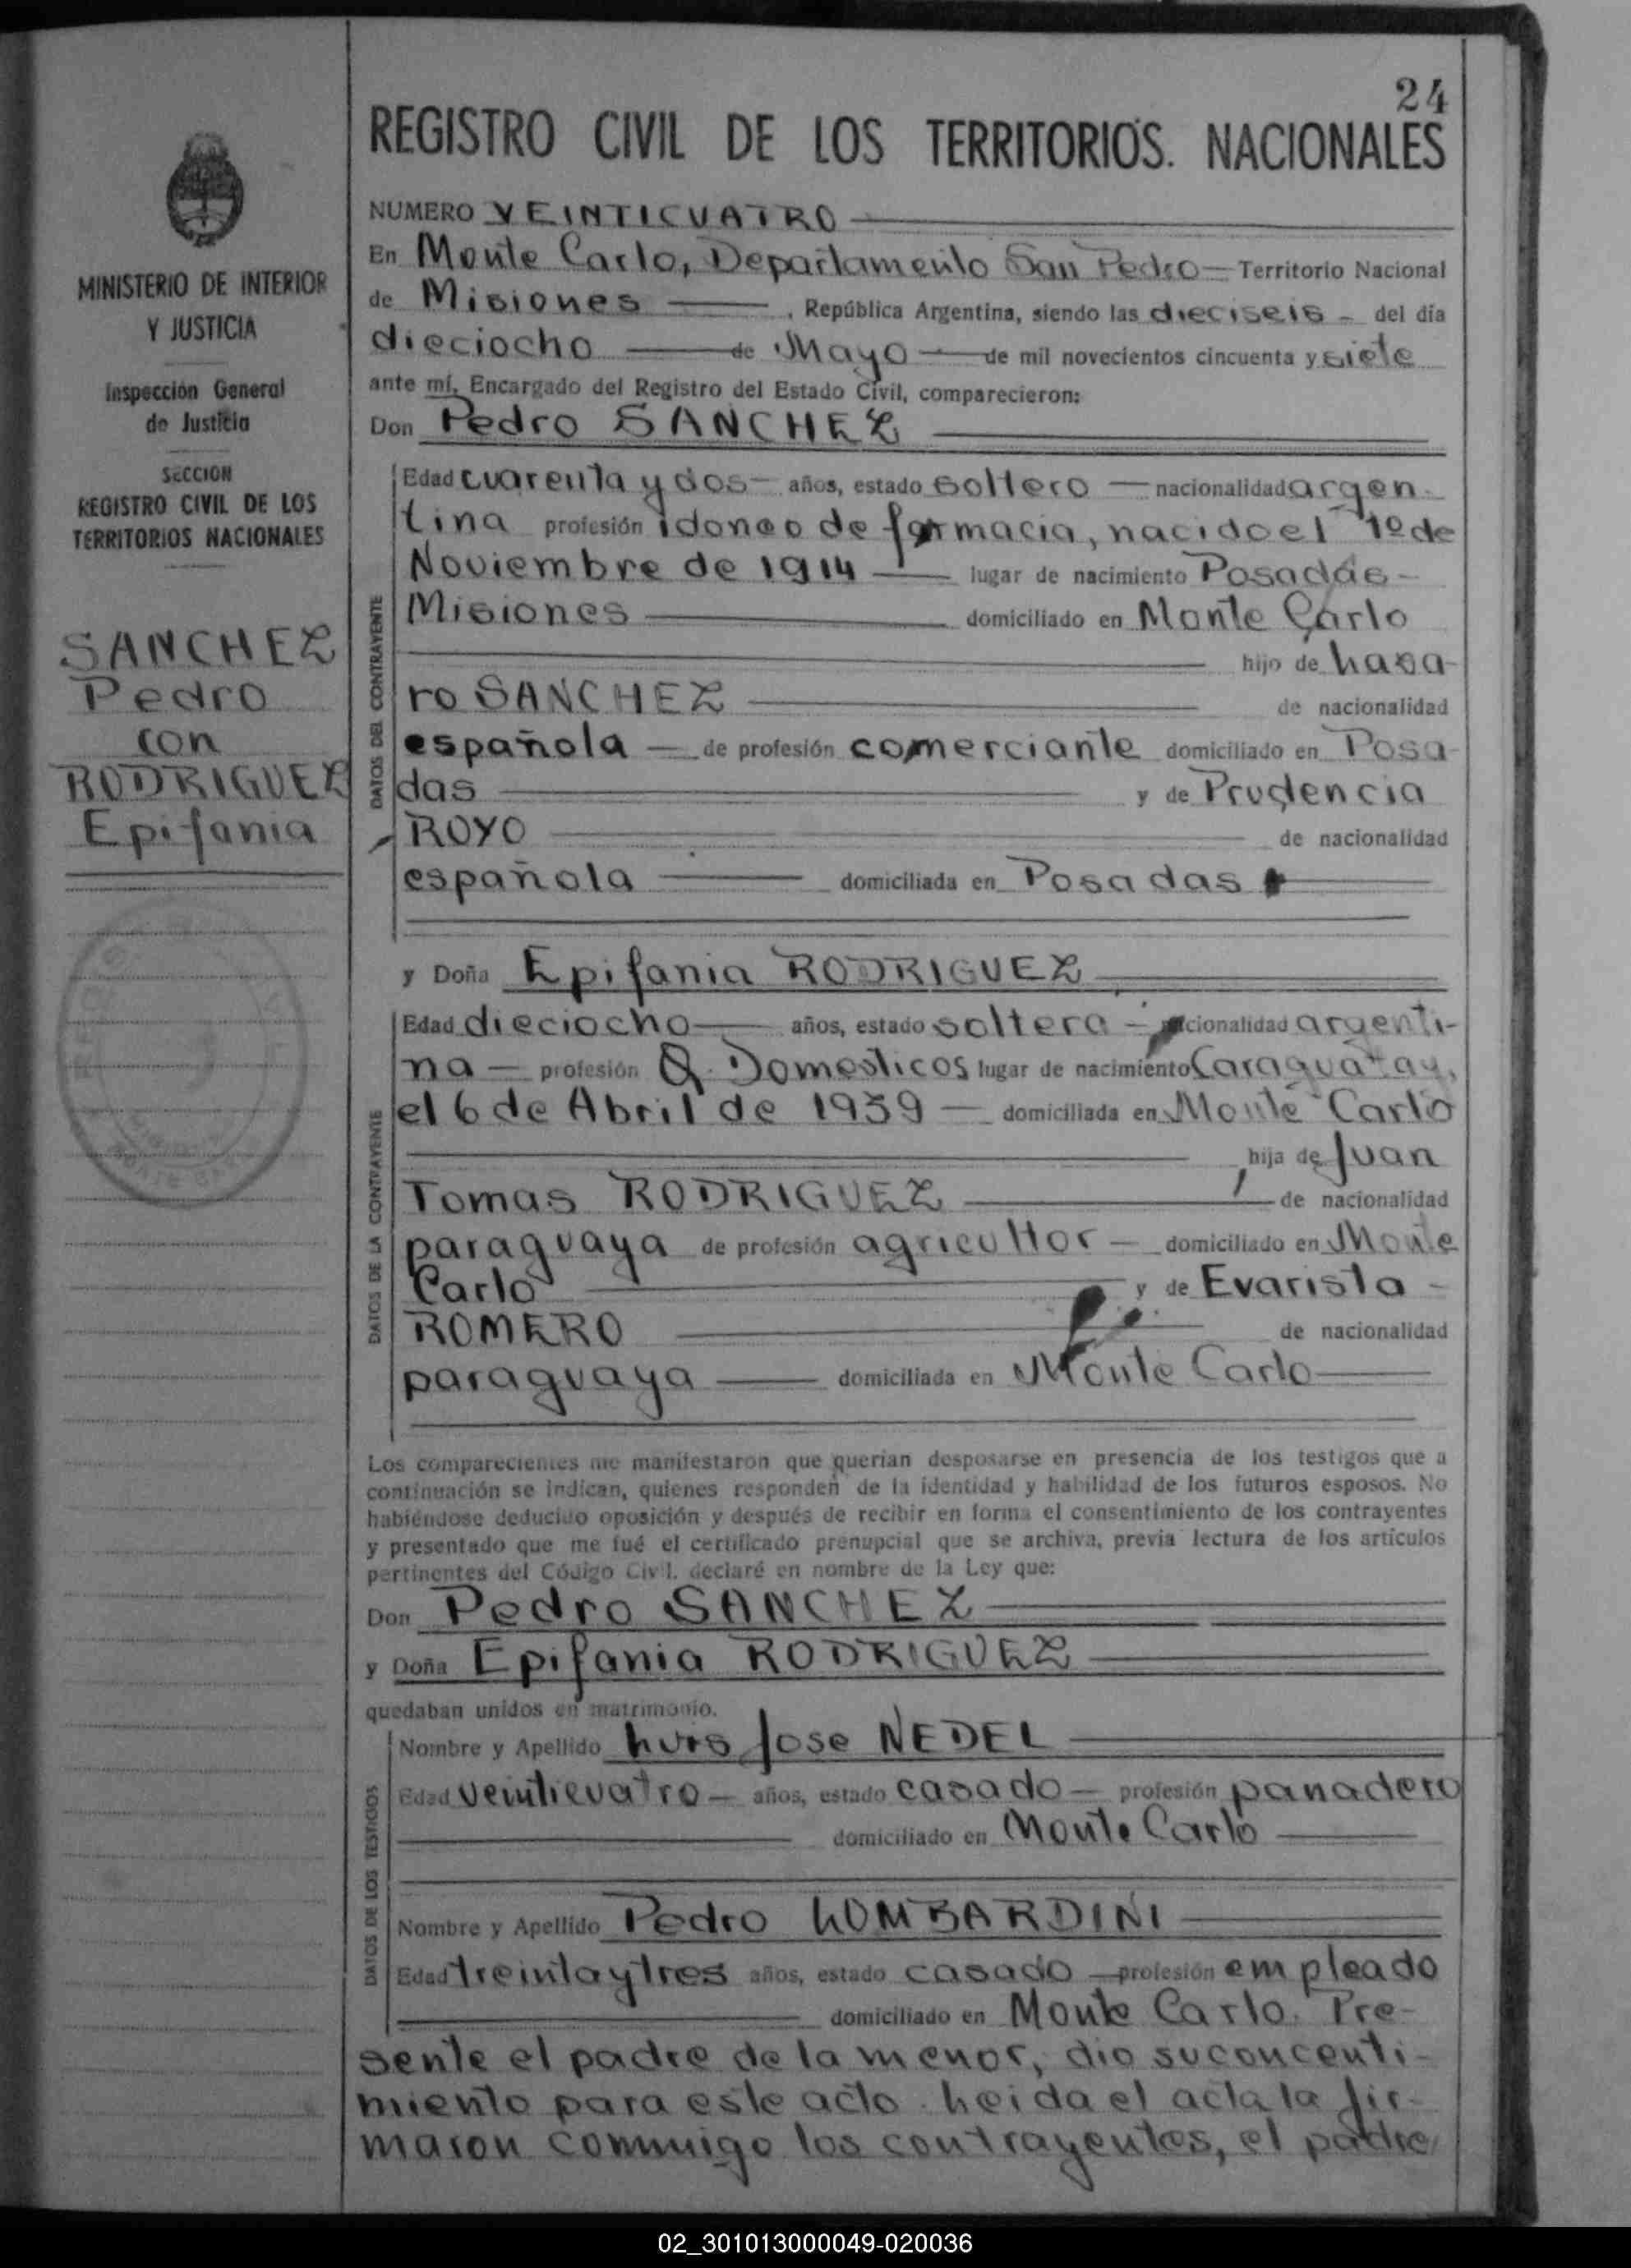 24
REGISTRO CIVIL DE LOS TERRITORIOS. NACIONALES
MINISTERIO DE INTERIOR
Y JUSTICIA
Inspección General
de Justicia
SECCION
REGISTRO CIVIL DE LOS
TERRITORIOS NACIONALES
SANCHEZ
Pedro
con
RODRIGUEZ
Epifania
NUMERO VEINTICUATRO
En Monte Carlo, Departamento San Pedro — Territorio Nacional
de Misiones — , República Argentina, siendo las dieciseis - del día
dieciocho — de Mayo — de mil novecientos cincuenta y siete
ante mí, Encargado del Registro del Estado Civil, comparecieron:
Don Pedro SANCHEZ
DATOS DEL CONTRAYENTE
Edad cuarenta y dos — años, estado soltero — nacionalidad argen-
tina profesión idoneo de farmacia, nacido el 1º de
Noviembre de 1914 — lugar de nacimiento Posadas -
Misiones — domiciliado en Monte Carlo
hijo de Lasa-
ro SANCHEZ — de nacionalidad
española — de profesión comerciante domiciliado en Posa-
das — y de Prudencia
ROYO — de nacionalidad
española — domiciliada en Posadas
y Doña Epifania RODRIGUEZ
DATOS DE LA CONTRAYENTE
Edad dieciocho — años, estado soltera - nacionalidad argenti-
na — profesión Q. Domesticos lugar de nacimiento Caraguatay,
el 6 de Abril de 1939 — domiciliada en Monte Carlo
hija de Juan
Tomas RODRIGUEZ — de nacionalidad
paraguaya de profesión agricultor — domiciliado en Monte
Carlo — y de Evarista -
ROMERO — de nacionalidad
paraguaya — domiciliada en Monte Carlo —
Los comparecientes me manifestaron que querían desposarse en presencia de los testigos que a
continuación se indican, quienes responden de la identidad y habilidad de los futuros esposos. No
habiéndose deducido oposición y después de recibir en forma el consentimiento de los contrayentes
y presentado que me fué el certificado prenupcial que se archiva, previa lectura de los artículos
pertinentes del Código Civil. declaré en nombre de la Ley que:
Don Pedro SANCHEZ
y Doña Epifania RODRIGUEZ
quedaban unidos en matrimonio.
DATOS DE LOS TESTIGOS
Nombre y Apellido Luis Jose NEDEL
Edad veinticuatro — años, estado casado — profesión panadero
domiciliado en Monte Carlo
Nombre y Apellido Pedro LOMBARDINI
Edad treinta y tres años, estado casado — profesión empleado
domiciliado en Monte Carlo. Pre-
sente el padre de la menor, dio su concenti-
miento para este acto. Leida el acta la fir-
maron conmigo los contrayentes, el padre
02_301013000049-020036